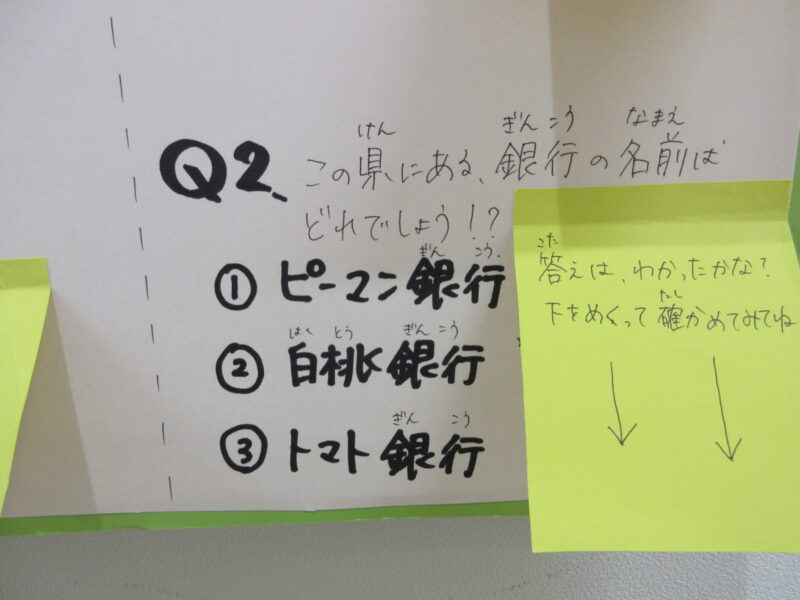 けん ぎんこう なまえ
Q2、この県にある、銀行の名前は
どれでしょう!?
ぎん こう
① ピーマン銀行
はく とう ぎん こう
② 白桃銀行
ぎん こう
③ トマト銀行
こた
答えは、わかったかな?
たし
下をめくって確かめてみてね